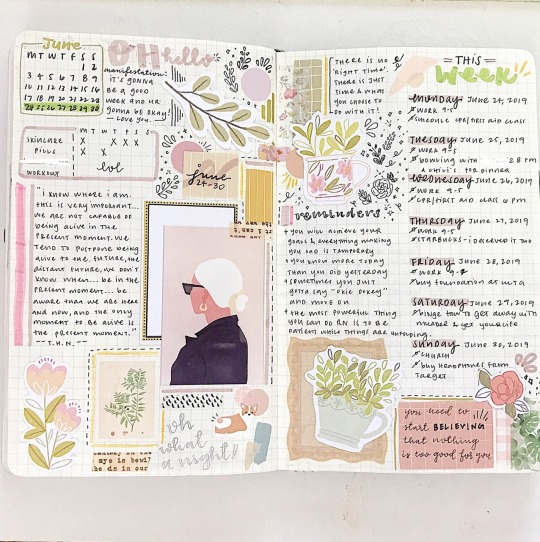 June
M T W T F S S
1 2
3 4 5 6 7 8 9
10 11 12 13 14 15 16
17 18 19 20 21 22 23
24 25 26 27 28 29 30
OH hello
manifestation:
it's gonna
be a good
week and ur
gonna be okay!
— love you.
M T W T F S S
SKINCARE X X X X
PILLS X
WORKOUT lol
june
24-30
"I know where i am.
this is very important...
we are not capable of
being alive in the
present moment. we
tend to postpone being
alive to the future, the
distant future, we don't
know when... be in the
present moment... be
aware that we are here
and now, and the only
moment to be alive is
the present moment."
— T.H.N. —
oh
what
a night!
there is no
"right time"
there is just
time & what
you choose to
do with it!
reminders
you will achieve your
goals & everything making
you sad is temporary
you know more today
than you did yesterday
sometimes you just
gotta say "okie dokey"
and move on
the most powerful thing
you can do rn is to be
patient while things are
THIS
week
monday June 24, 2019
CPR/first aid class
Tuesday June 25, 2019
work 9-5
bowling with 28 pm
a chili's for dinner
Wednesday June 26, 2019
work 9-5
CPR/first aid class 6 pm
Thursday June 27, 2019
work 9-5
Starbucks - i deserved it tho
Friday June 28, 2019
work
buy foundation at ulta
Saturday June 29, 2019
binge how to get away with
murder & get your life
Sunday June 30, 2019
church
buy headphones from
Target
you need to
start BELIEVING
that nothing
is too good for you